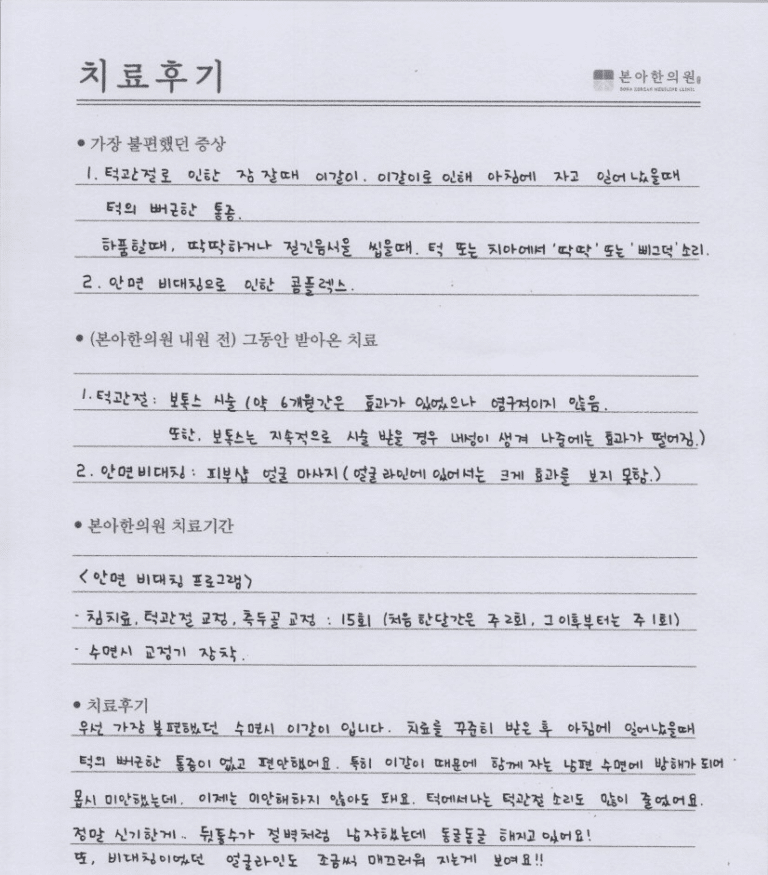 치료후기
본아한의원
BONA KOREAN MEDICINE CLINIC
• 가장 불편했던 증상
1. 턱관절로 인한 잠 잘때 이갈이. 이갈이로 인해 아침에 자고 일어났을때
턱의 뻐근한 통증.
하품할때, 딱딱하거나 질긴음식을 씹을때. 턱 또는 치아에서 '딱딱' 또는 '삐그덕' 소리.
2. 안면 비대칭으로 인한 콤플렉스.
• (본아한의원 내원 전) 그동안 받아온 치료
1. 턱관절 : 보톡스 시술 (약 6개월간은 효과가 있었으나 영구적이지 않음.
또한, 보톡스는 지속적으로 시술 받을 경우 내성이 생겨 나중에는 효과가 떨어짐.)
2. 안면비대칭 : 피부샵 얼굴 마사지 (얼굴라인에 있어서는 크게 효과를 보지 못함.)
• 본아한의원 치료기간
<안면 비대칭 프로그램>
· 침치료, 턱관절 교정, 측두골 교정 : 15회 (처음 한달간은 주2회, 그 이후부터는 주 1회)
· 수면시 교정기 장착.
• 치료후기
우선 가장 불편했던 수면시 이갈이 입니다. 치료를 꾸준히 받은 후 아침에 일어났을때
턱의 뻐근한 통증이 없고 편안했어요. 특히 이갈이 때문에 함께 자는 남편 수면에 방해가 되어
몹시 미안했는데, 이제는 미안해하지 않아도 돼요. 턱에서나는 턱관절 소리도 많이 줄었어요.
정말 신기한게.. 뒷통수가 절벽처럼 납작했는데 동글동글 해지고 있어요!
또, 비대칭이었던 얼굴라인도 조금씩 매끄러워 지는게 보여요!!